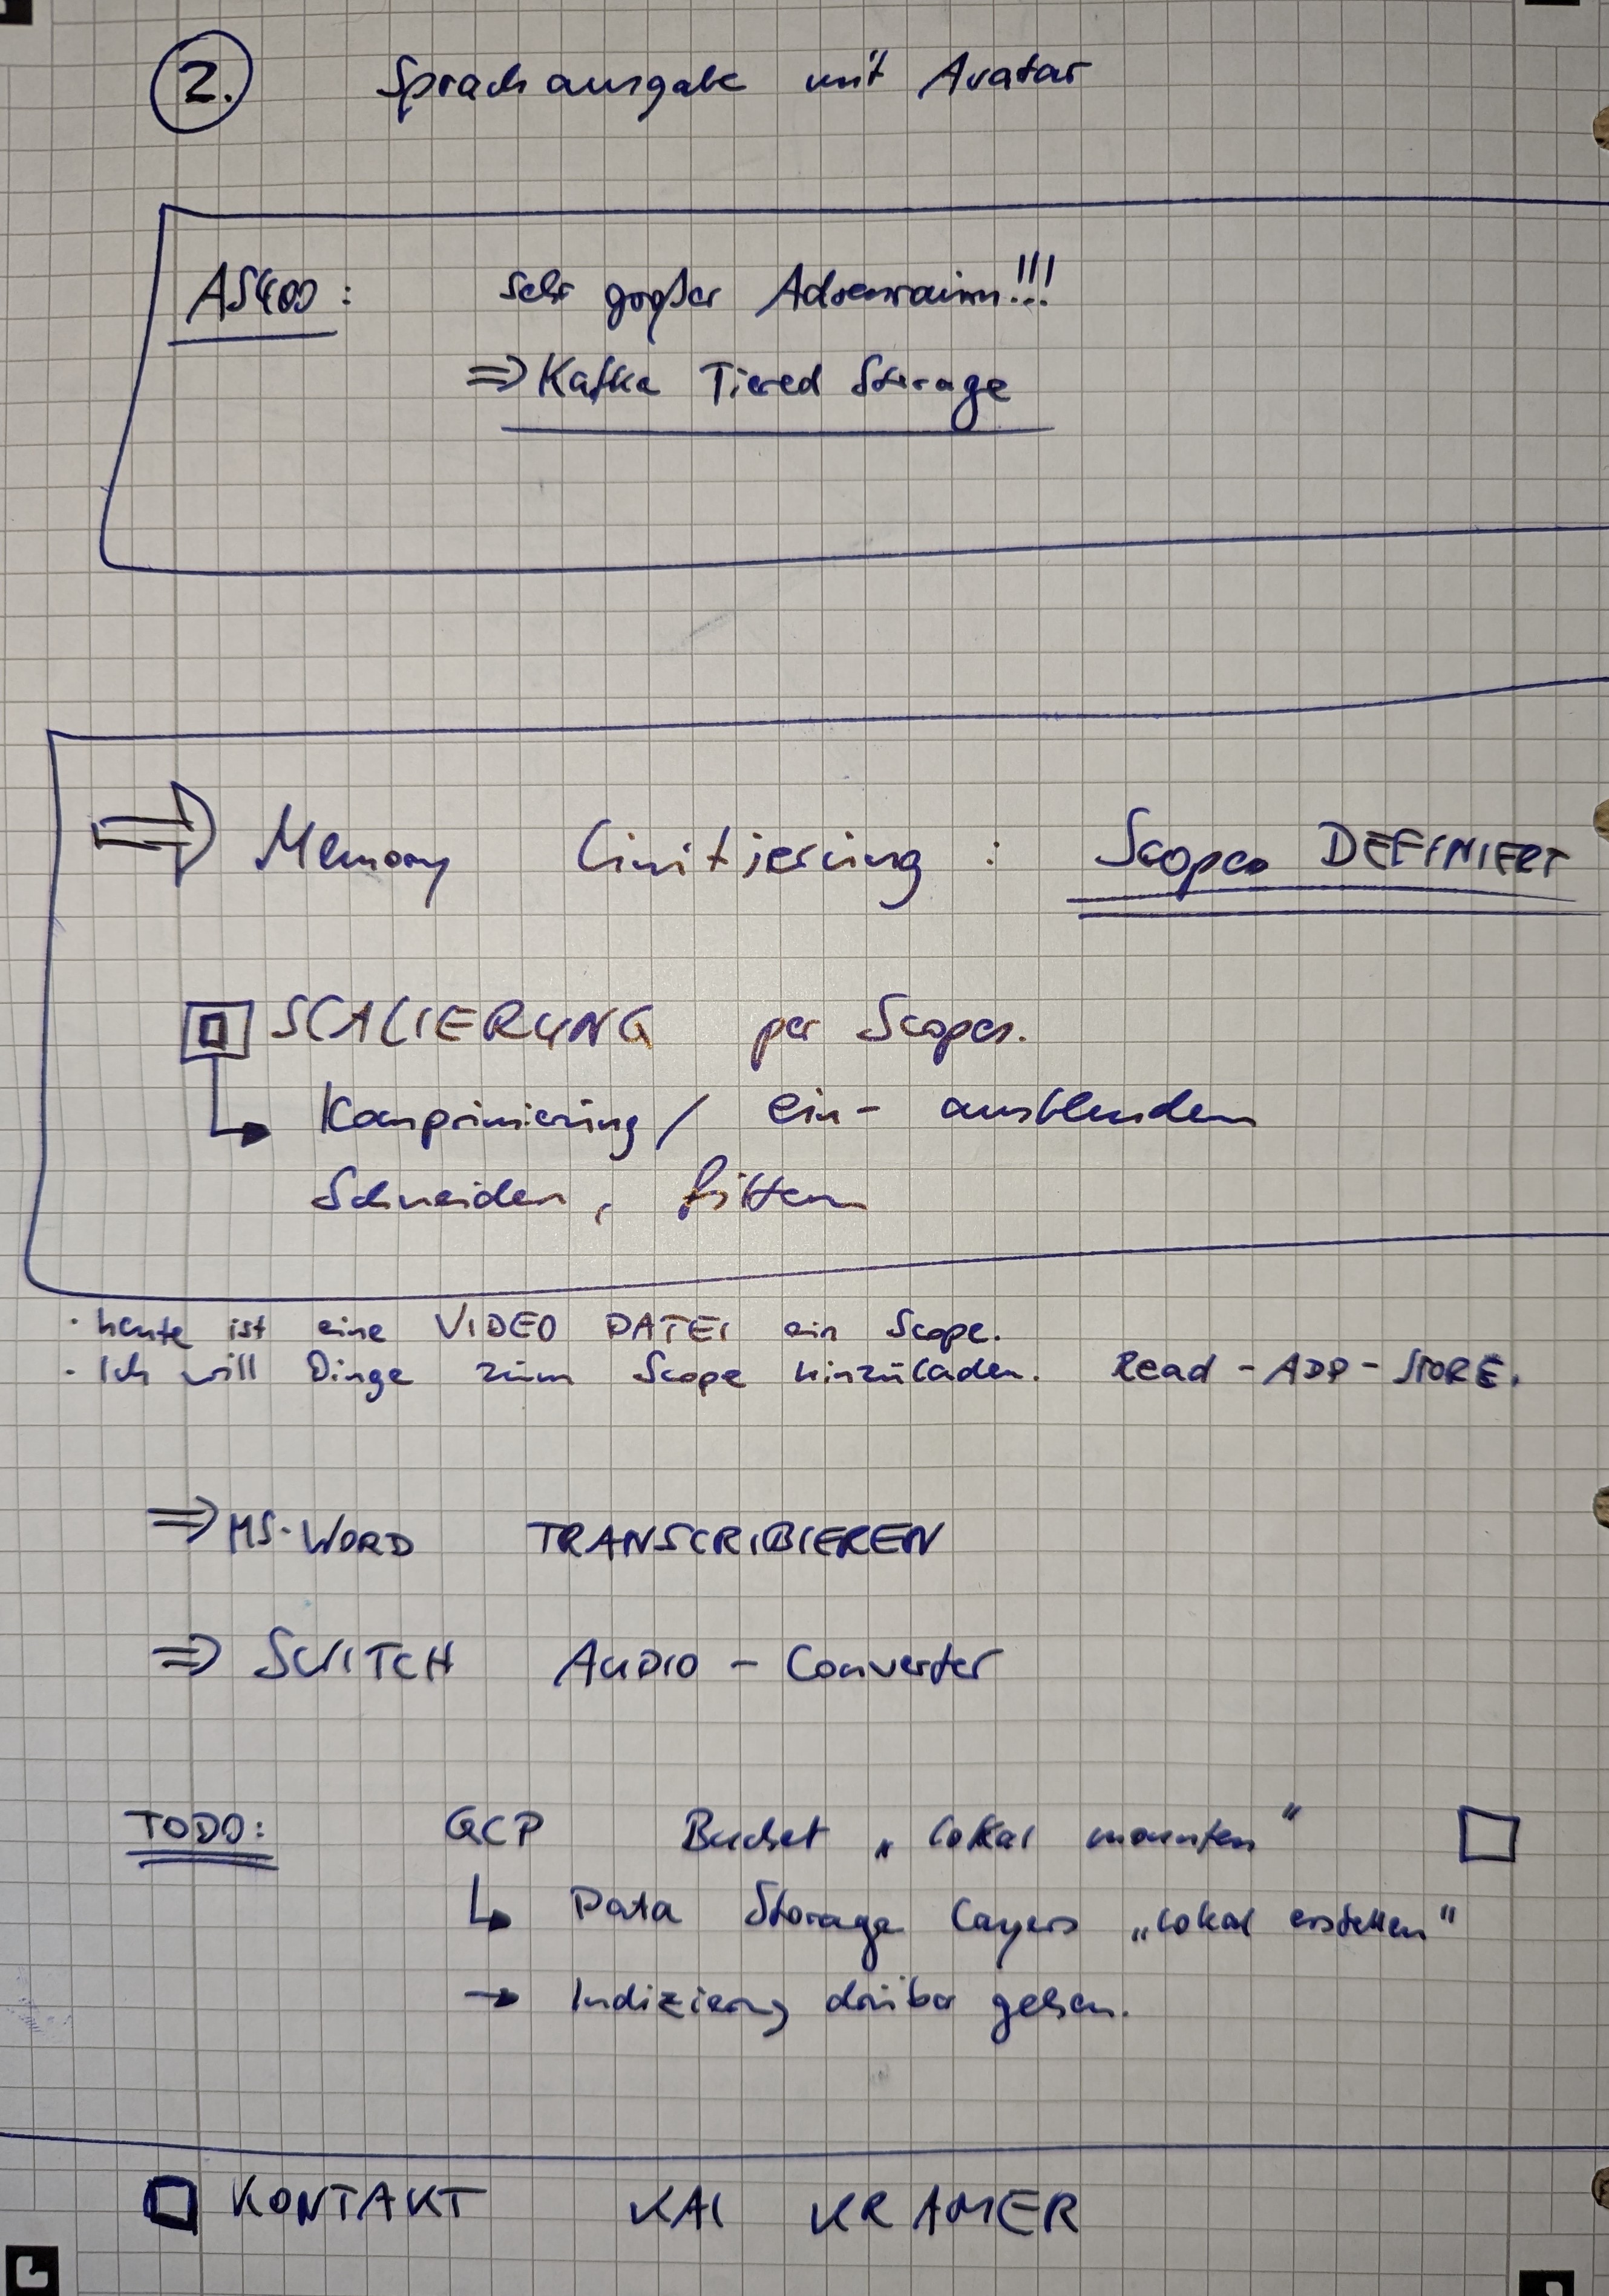 2. Sprachausgabe mit Avatar
AS400: sehr großer Adressraum!!!
⇒ Kafka Tiered Storage
⇒ Memory Limitierung: Scopes DEFINIERT
SCALIERUNG per Scopes.
Komprimierung / ein- ausblenden
Schneiden, filtern
· heute ist eine VIDEO DATEI ein Scope.
· Ich will Dinge zum Scope hinzuladen. Read - ADD - STORE.
⇒ MS-WORD TRANSCRIBIEREN
⇒ SWITCH AUDIO - Converter
TODO: GCP Bucket „lokal mounten“
↳ Data Storage Layers „lokal erstellen“
→ Indizierung drüber gehen.
KONTAKT KAI KRAMER